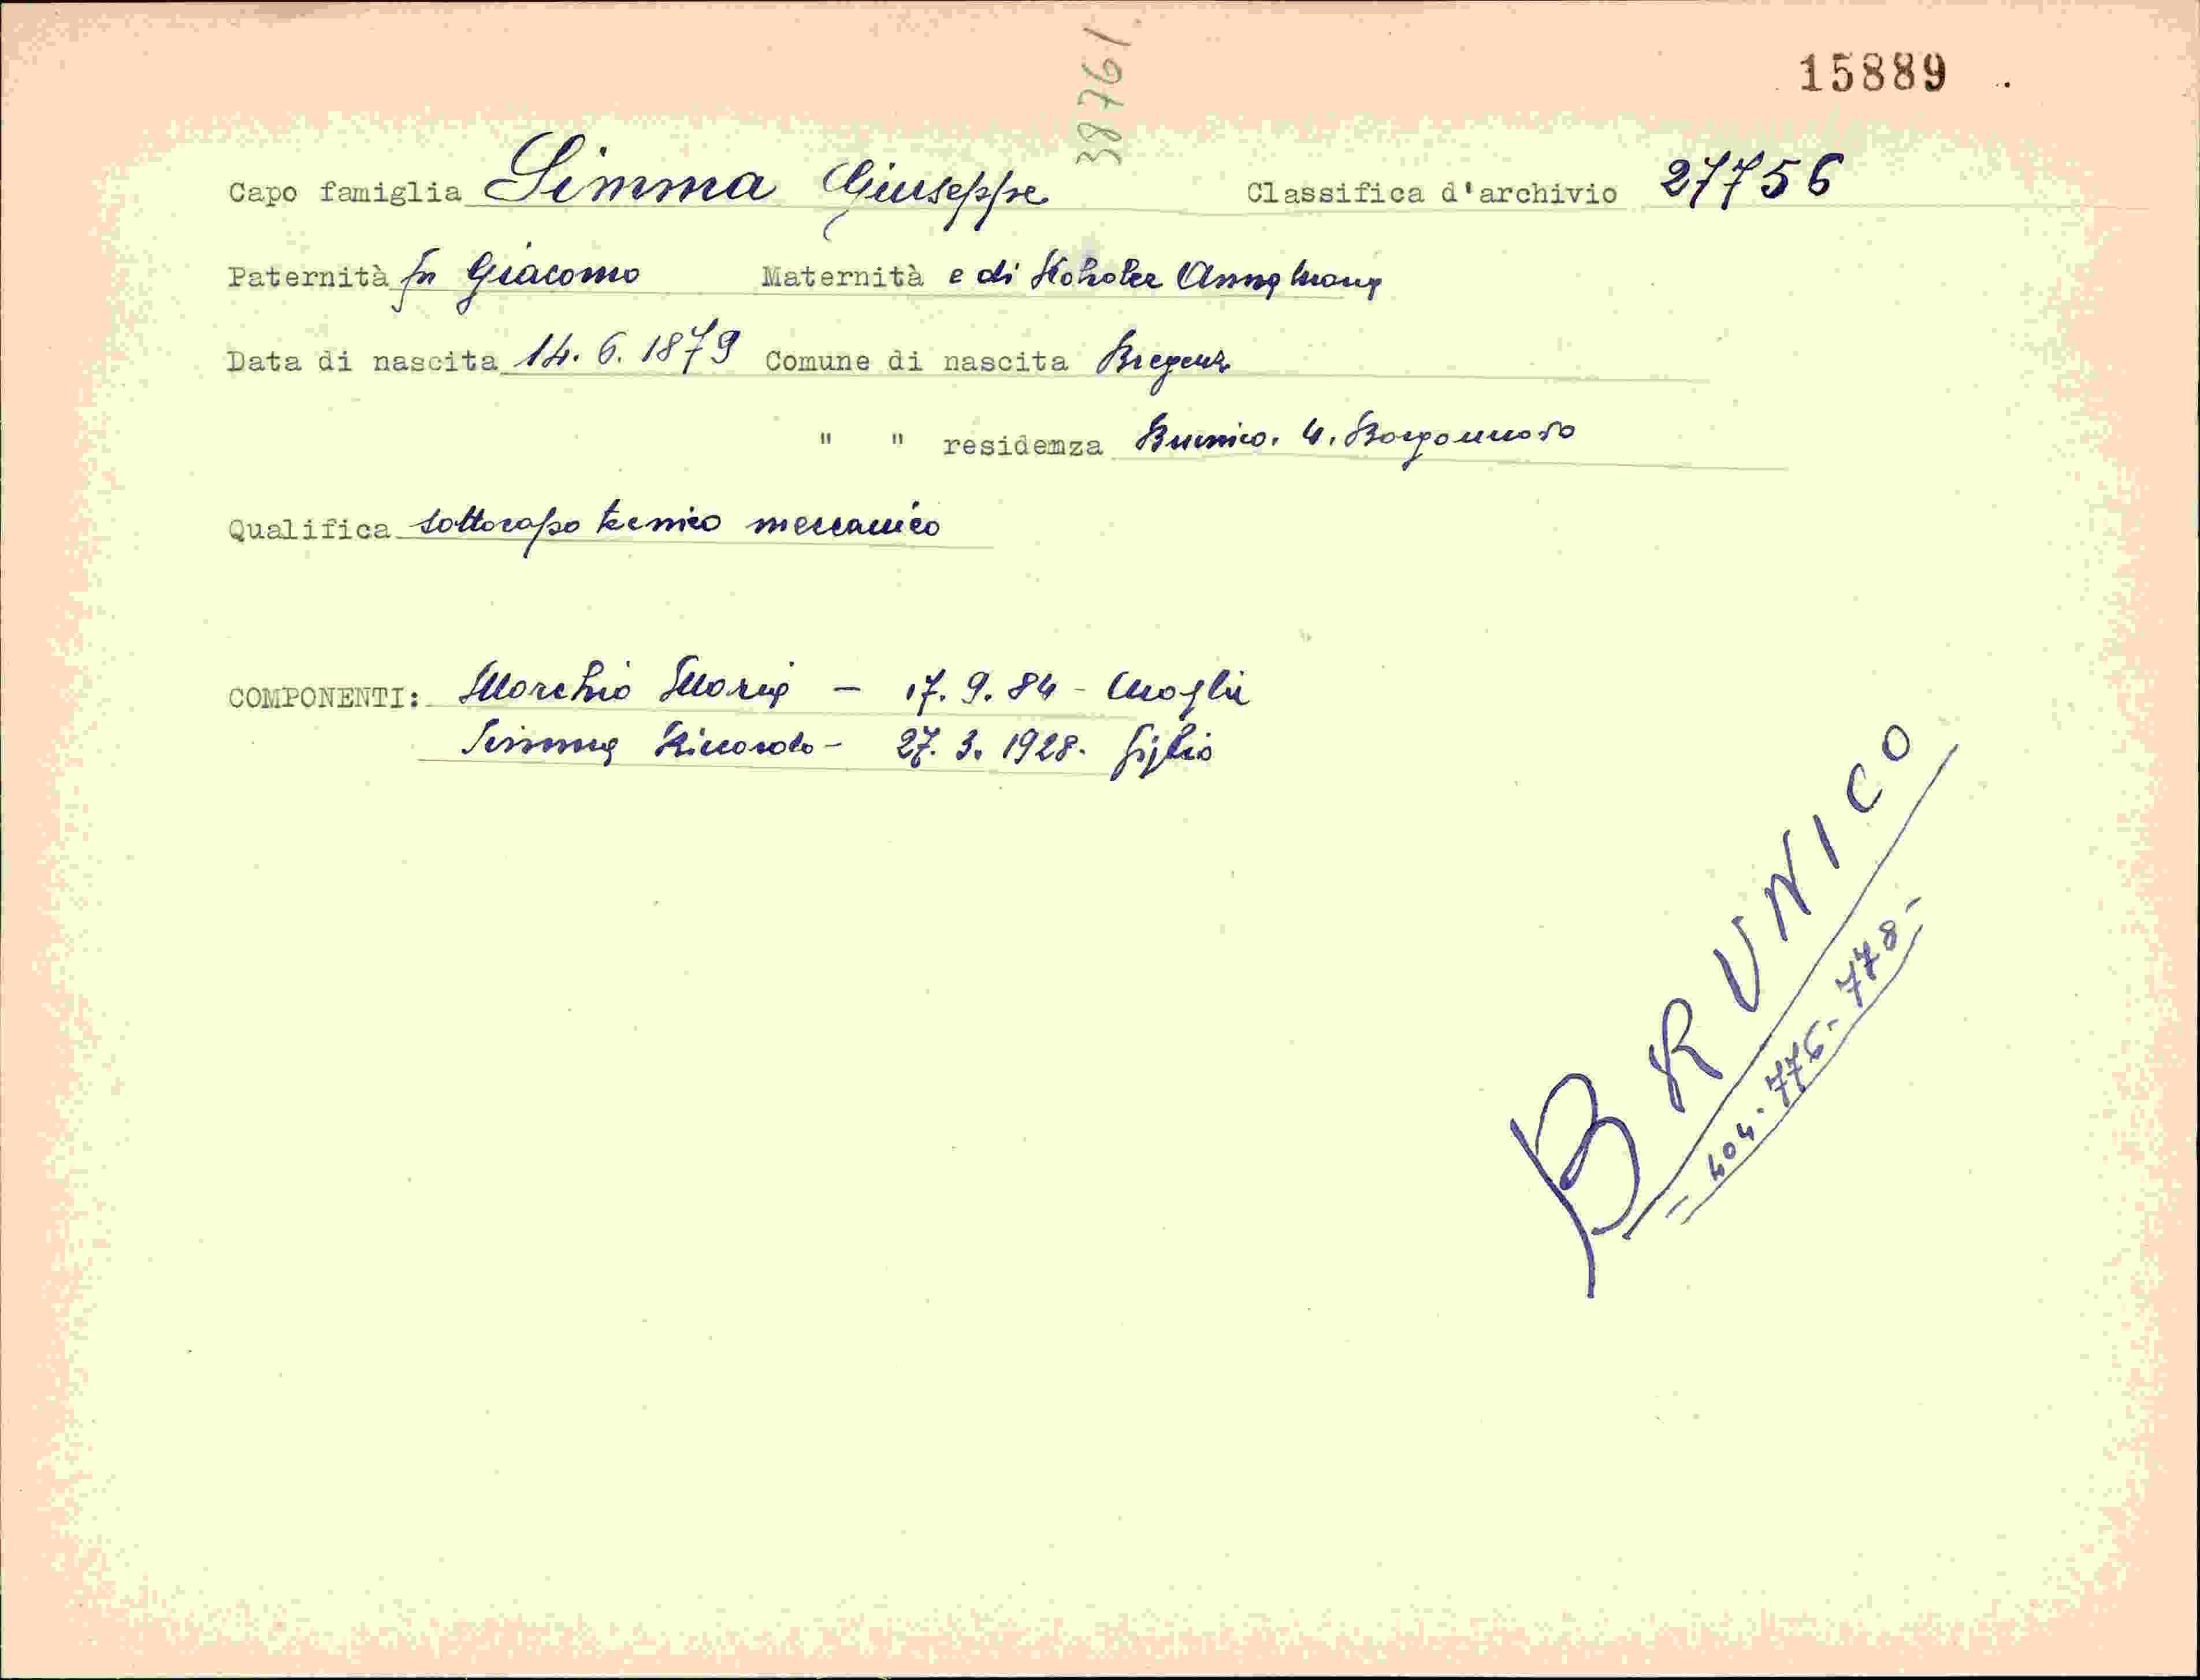 38761
15889
Capo famiglia Simma Giuseppe Classifica d'archivio 27756
Paternità fu Giacomo Maternità e di Koholer Anna Maria
Data di nascita 14. 6. 1879 Comune di nascita Bregenz
" " residenza Brunico. 4. Borgonuovo
Qualifica sottocapo tecnico meccanico
COMPONENTI: Marchio Maria - 17. 9. 84 - Moglie
Simma Riccardo - 27. 3. 1928. figlio
BRUNICO
= 404. 776- 778-